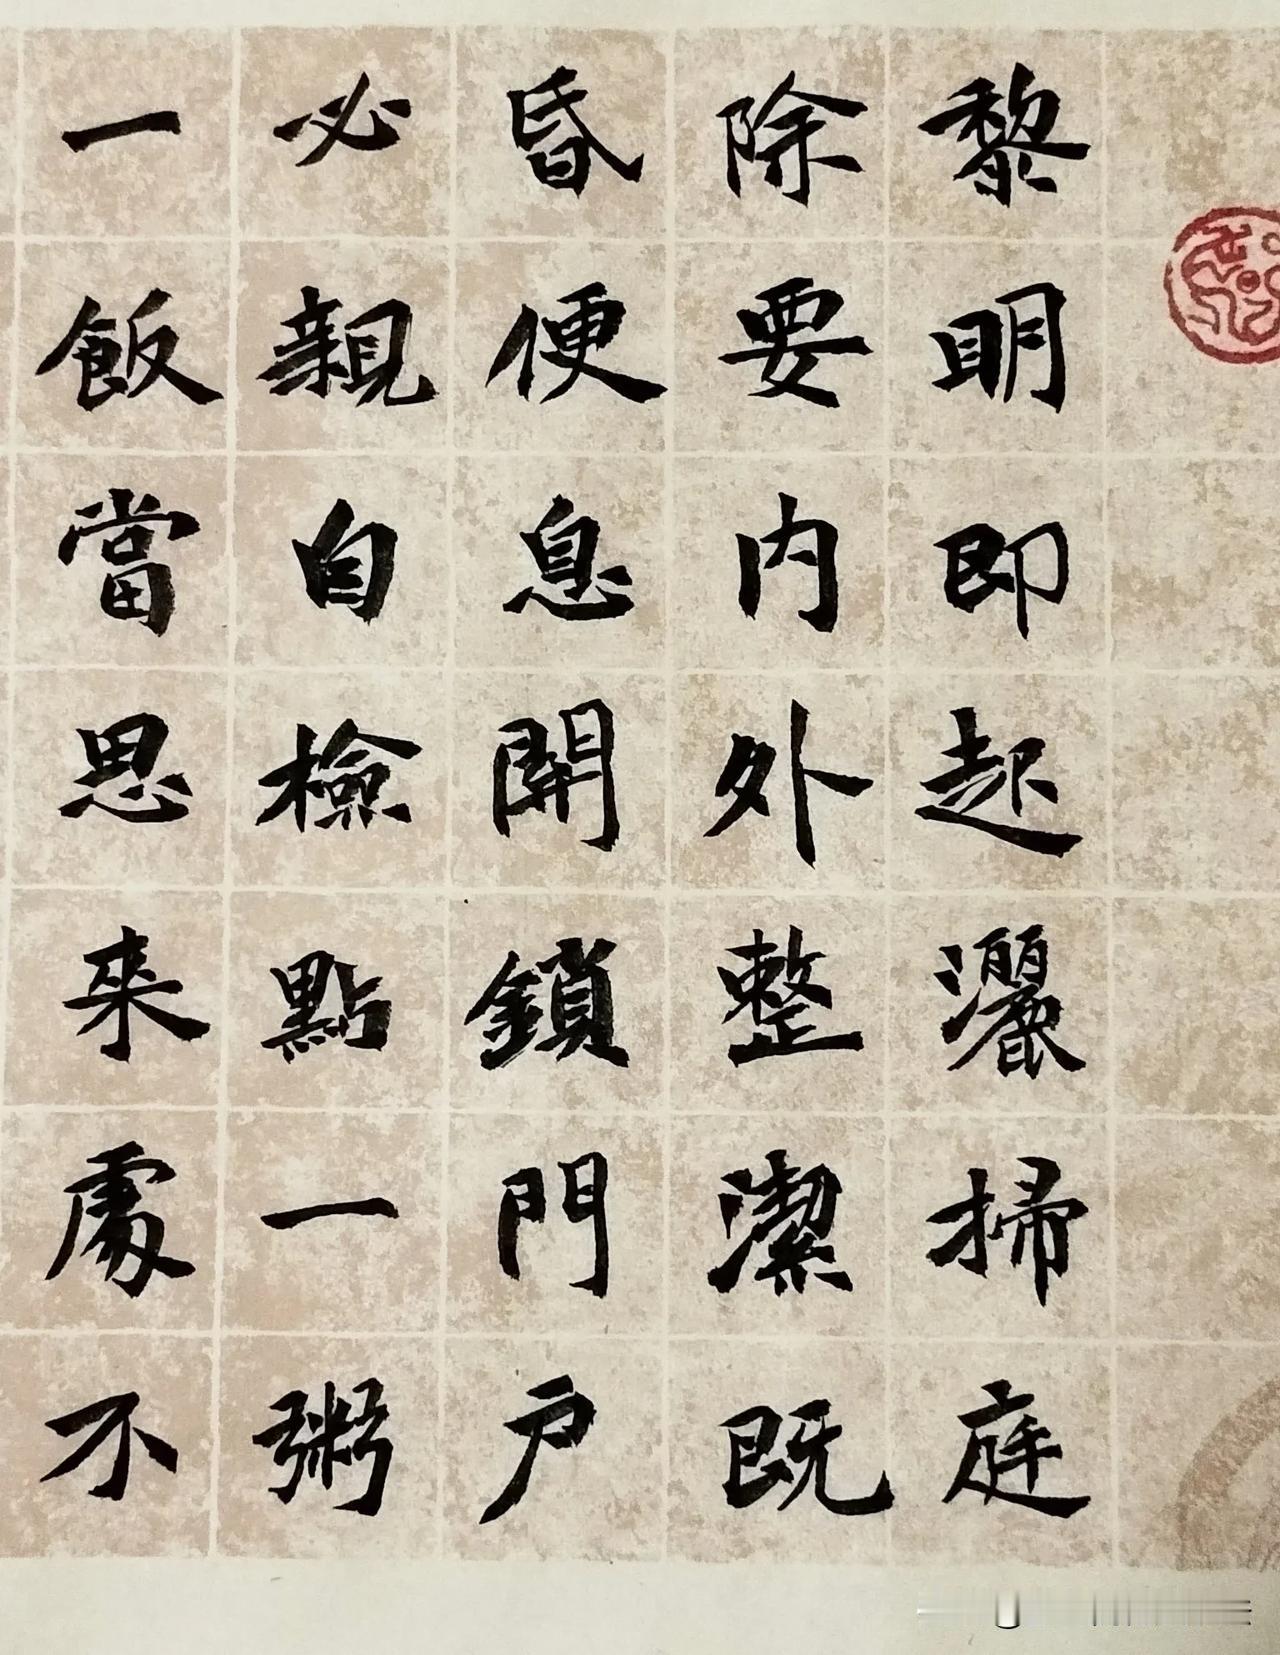 黎明即起灑掃庭
除要内外整潔既
昏便息開鎖門户
必親自檢點一粥
一飯當思來處不